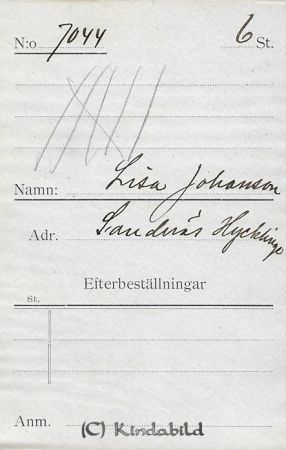 N:o 7044 6 St.
Namn: Lisa Johanson
Adr. Sandnäs Hycklinge
Efterbeställningar
St.
Anm.
(C) Kindabild